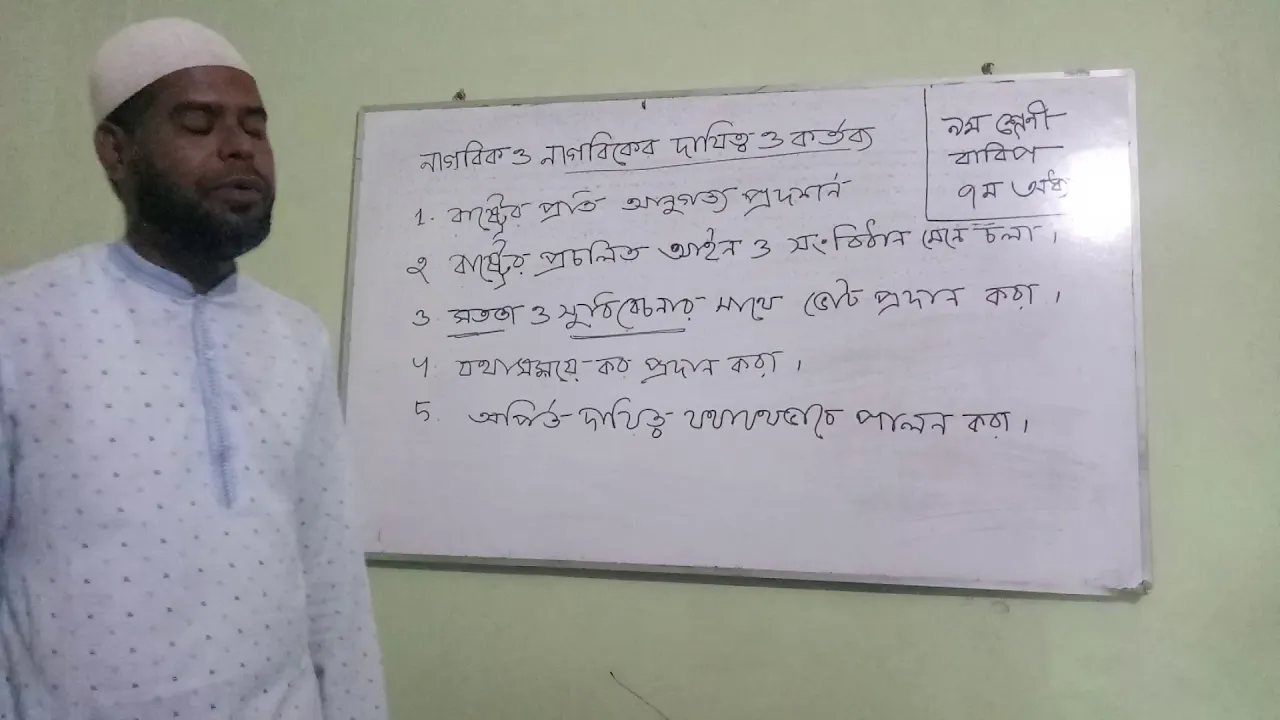 নাগরিক ও নাগরিকের দায়িত্ব ও কর্তব্য
৯ম শ্রেণী
বাবিপ
৭ম অধ্য
1. রাষ্ট্রের প্রতি আনুগত্য প্রদর্শন
২ রাষ্ট্রের প্রচলিত আইন ও সংবিধান মেনে চলা।
৩. সততা ও সুবিবেচনার সাথে ভোট প্রদান করা।
৪. যথাসময়ে কর প্রদান করা।
5. অর্পিত দায়িত্ব যথাযথভাবে পালন করা।